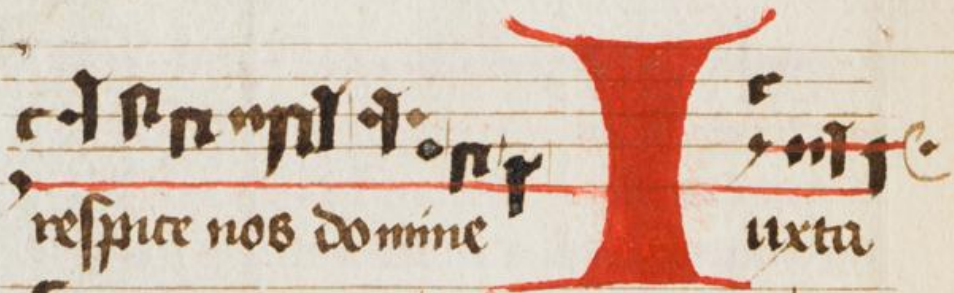 respice nos domine Iuxta